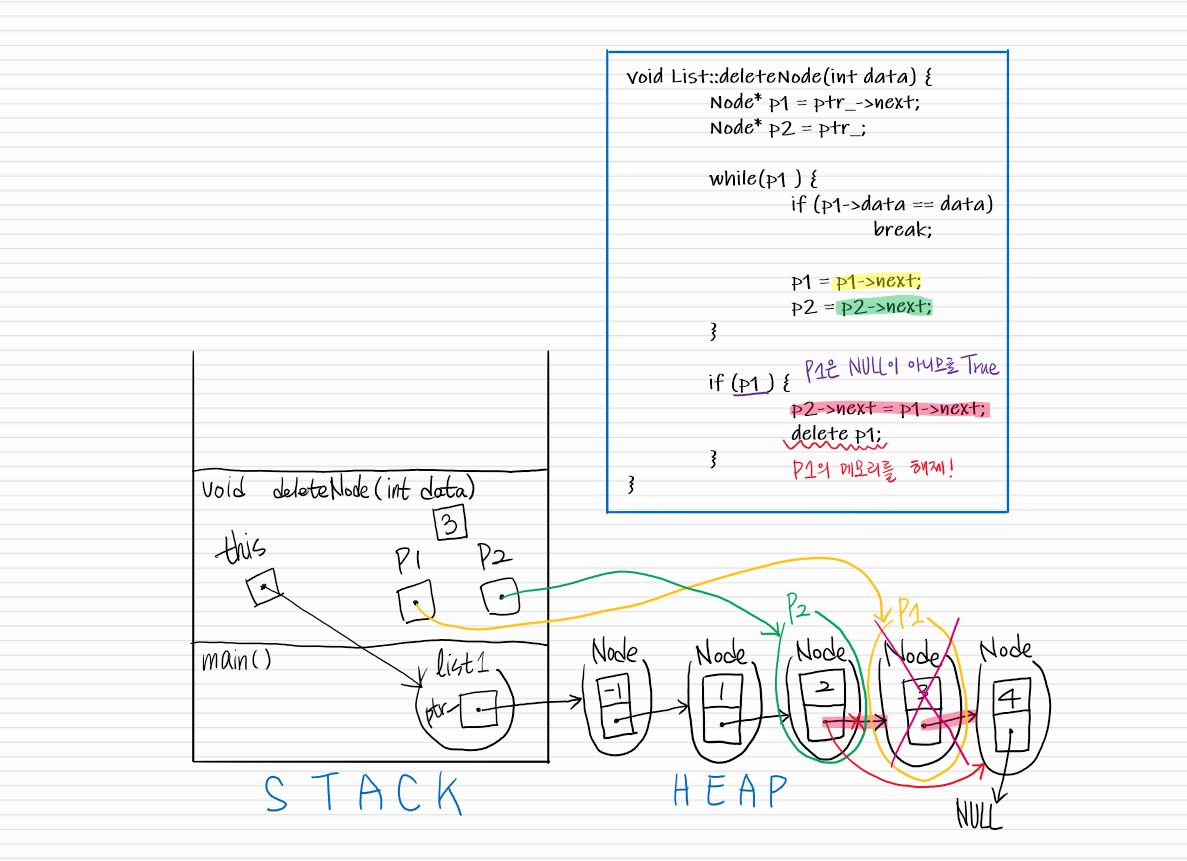 void List::deleteNode(int data) {
Node* p1 = ptr_->next;
Node* p2 = ptr_;
while(p1 ) {
if (p1->data == data)
break;
p1 = p1->next;
p2 = p2->next;
}
if (p1 ) {
P1은 NULL이 아니므로 True
p2->next = p1->next;
delete p1;
}
P1의 메모리를 해제!
}
void deleteNode(int data)
3
this
P1
P2
main()
list1
ptr_
P2
P1
Node
Node
Node
Node
Node
-1
1
2
3
4
STACK
HEAP
NULL